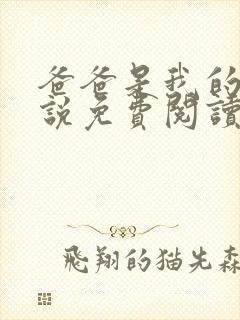 爸爸是我的
說免費閱讀
飛翔的猫先森